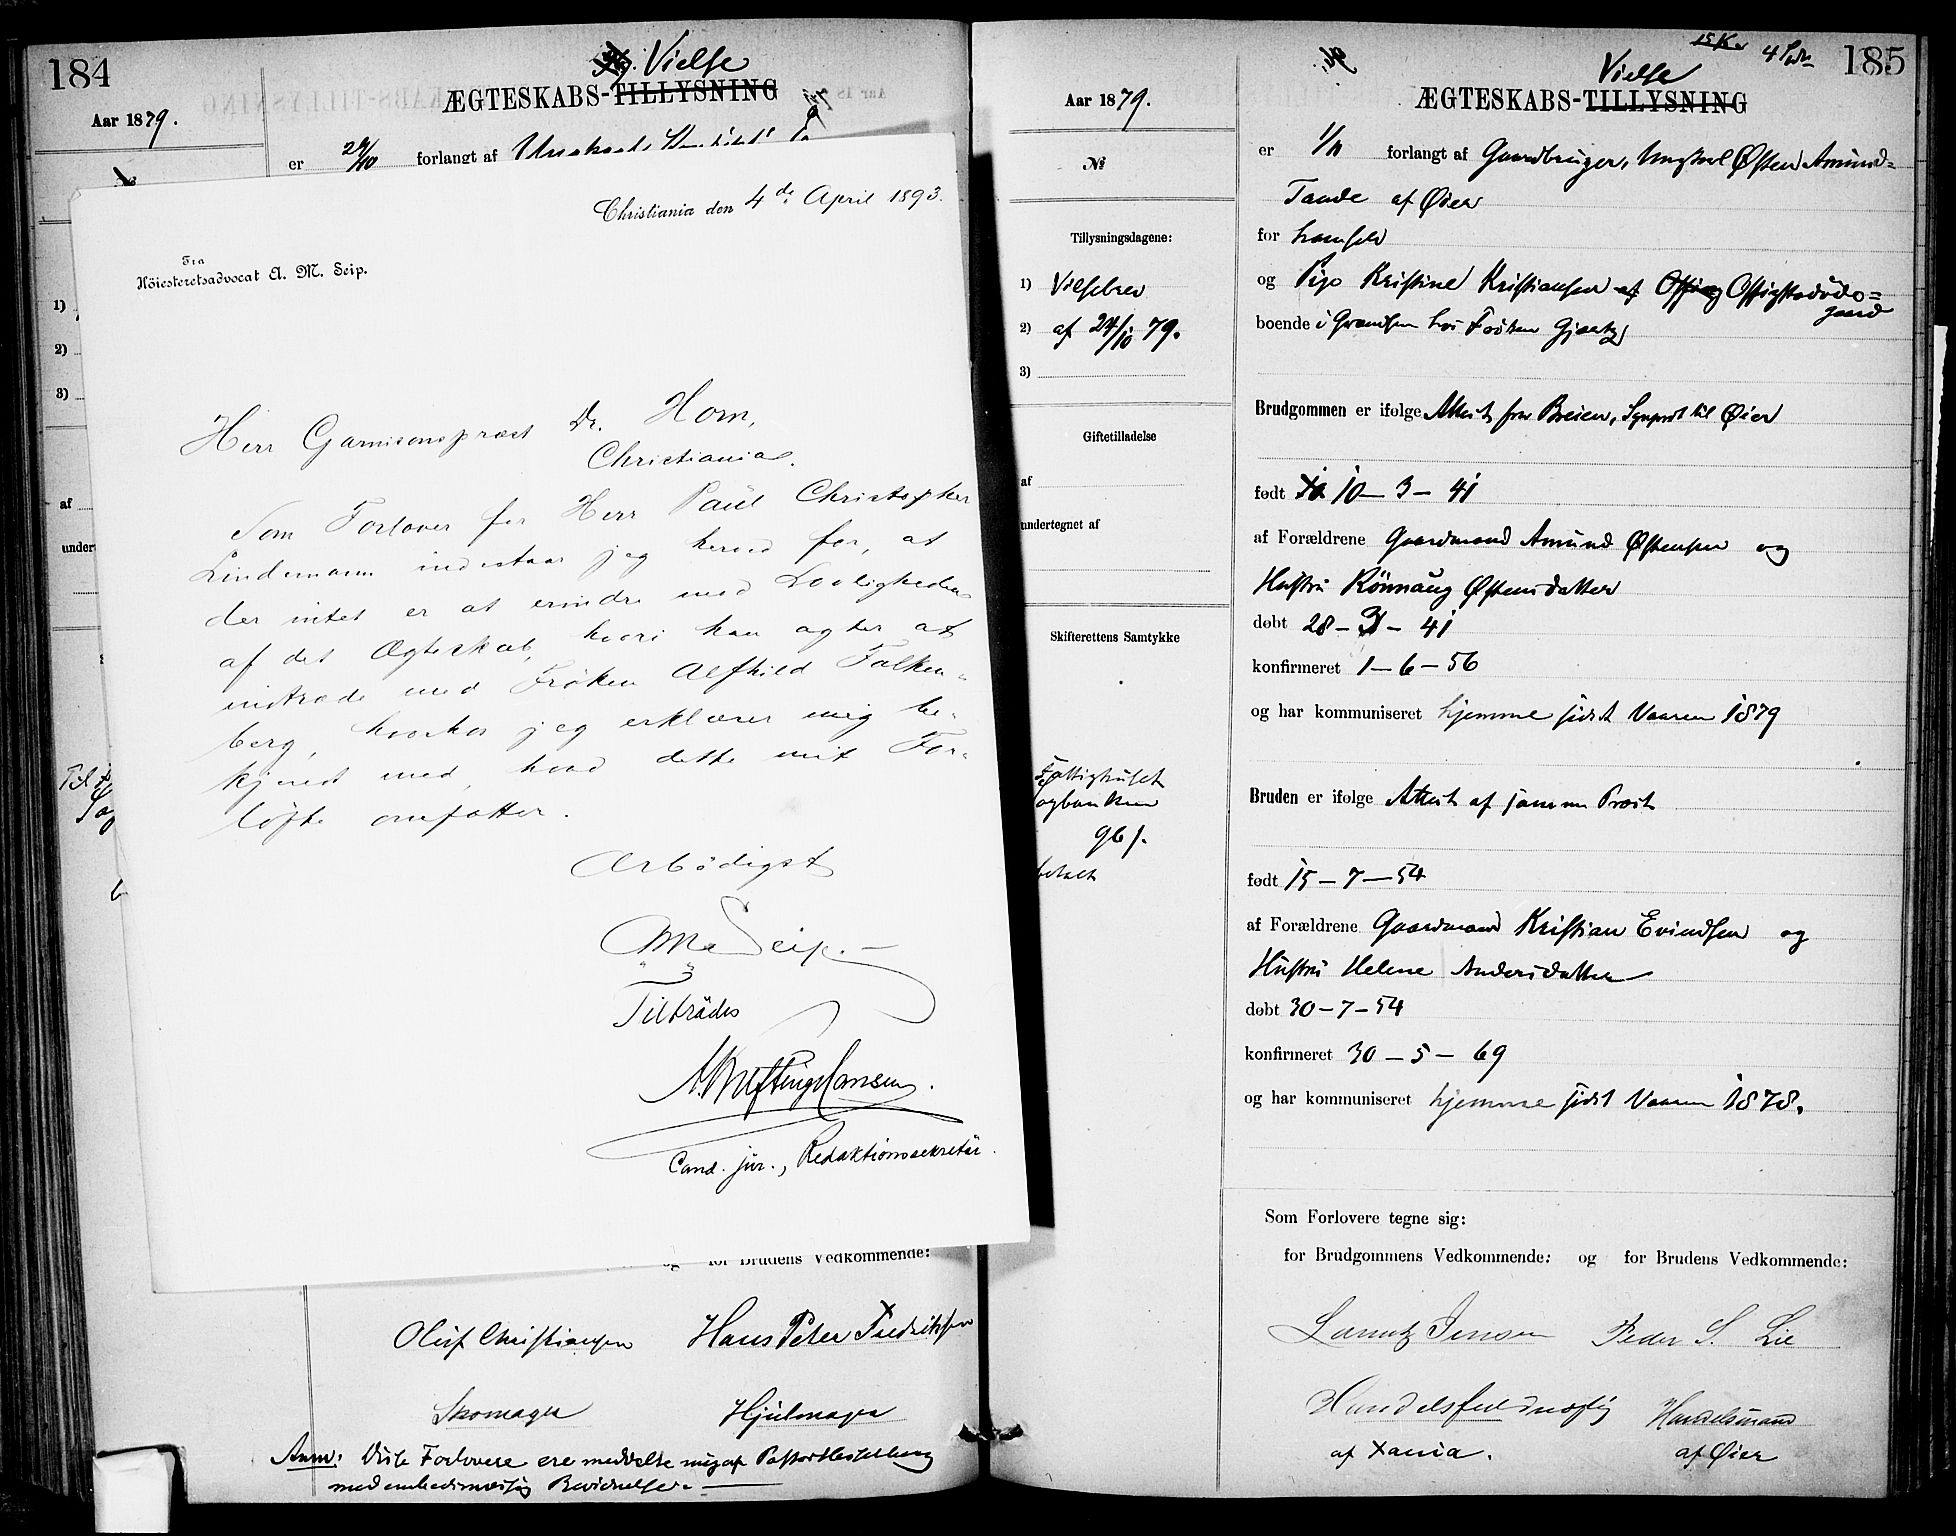 184
Vielse
ÆGTESKABS-TILLYSNING
Aar 1879.
er 29/10 forlangt af
1)
2)
3)
af
Christiania den 4de April 1893.
Fra
Höiesteretsadvocat A. M. Seip.
Herr Garnisonspræst Dr. Horn,
Christiania.
Som Forlover for Herr Paul Christopher
Lindemann indestaar jeg herved for, at
der intet er at erindre mod Lovligheden
af det Ægteskab, hvori han agter at
indtræde med Frøken Alfhild Falken-
berg, hvorhos jeg erklærer mig be-
kjendt med, hvad dette mit For-
løfte omfatter.
Ærbödigst
A M Seip.
Tiltrædes
Cand. jur., Redaktionssekretär.
og for Brudens Vedkommende:
Oluf Christiansen Hans Peter Fredriksen
Skomager Hjulmager
Anm: Disse Forlovere ere meddelte mig af Pastor Hesselberg
med embedsmæssig Bevidnelse.
15 Kr 4 185
Vielse
ÆGTESKABS-TILLYSNING
Aar 1879.
№
Tillysningsdagene:
1) Vielsebrev
2) af 24/10 79.
3)
Giftetilladelse
af
undertegnet af
Skifterettens Samtykke
Fattighuset
96 f.
betalt
er 1/11 forlangt af Gaardbruger, Ungkarl Østen Amund-
Tande af Øier
for ham selv
og Pige Kristine Kristiansen af
boende i Grændsen hos Frøken
Brudgommen er ifølge Attest fra Breien, Sgnprst til Øier
født 10-3-41
af Forældrene Gaardmand Amund Østensen og
Hustru Rönnaug Østensdatter
døbt 28-3-41
konfirmeret 1-6-56
og har kommuniseret hjemme sidst Vaaren 1879
Bruden er ifølge Attest af samme Præst
født 15-7-54
af Forældrene Gaardmand Kristian Evindsen og
Hustru Helene Andersdatter
døbt 30-7-54
konfirmeret 30-5-69
og har kommuniseret hjemme sidst Vaaren 1878.
Som Forlovere tegne sig:
for Brudgommens Vedkommende: og for Brudens Vedkommende:
Lauritz Jensen Peder S. Lie
Handelsfuldmægtig Handelsmand
af Xania. af Øier